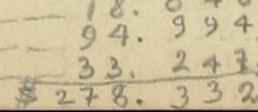 94. 994
33. 247
$278. 332